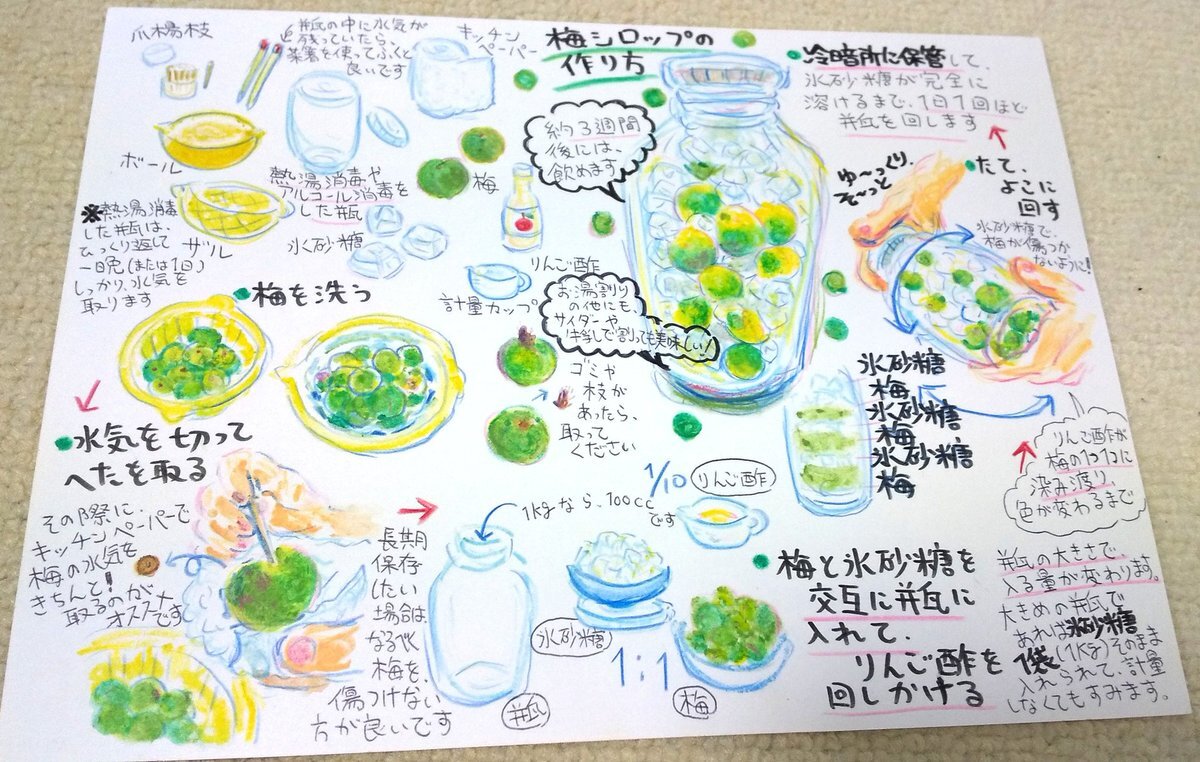 梅シロップの
作り方
爪楊枝
瓶の中に水気が
残っていたら、
菜箸を使ってふくと
良いです
キッチン
ペーパー
ボール
ザル
熱湯消毒や
アルコール消毒を
した瓶
梅
氷砂糖
りんご酢
計量カップ
※熱湯消毒
した瓶は、
ひっくり返して
一晩(または1回)
しっかり、水気を
取ります
約3週間
後には、
飲めます
お湯割り
の他にも、
サイダーや
牛乳で割っても美味しい!
梅を洗う
ゴミや
枝が
あったら、
取って
ください
水気を切って
へたを取る
その際に、
キッチンペーパーで
梅の水気を
きちんと!
取るのが
オススメです
長期
保存
したい
場合は、
なるべく
梅を、
傷つけない
方が良いです
1kgなら、100cc
です
1/10
りんご酢
瓶
氷砂糖
1:1
梅
氷砂糖
梅
氷砂糖
梅
氷砂糖
梅
梅と氷砂糖を
交互に瓶に
入れて、
りんご酢を
回しかける
瓶の大きさで
入る量が変わります。
大きめの瓶で
あれば氷砂糖
1袋(1kg)そのまま
入れられて、計量
しなくてもすみます。
りんご酢が
梅の1つ1つに
染み渡り、
色が変わるまで
たて、
よこに
回す
ゆ〜っくり、
そ〜っと
氷砂糖で、
梅が傷つか
ないように!
冷暗所に保管して、
氷砂糖が完全に
溶けるまで、1日1回ほど
瓶を回します